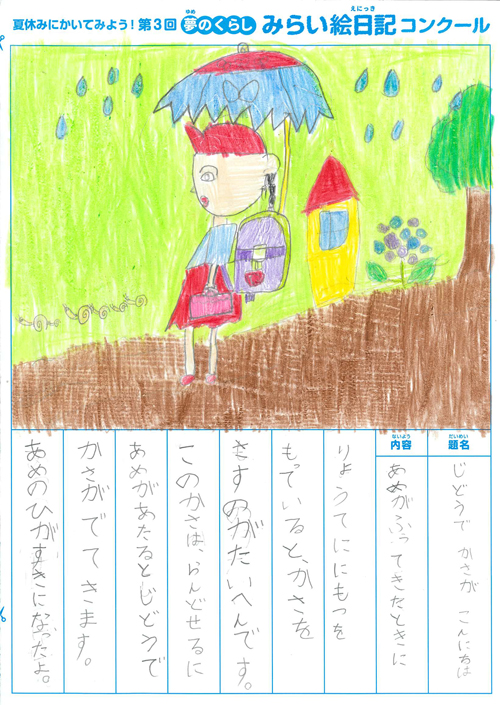 夏休みにかいてみよう！第3回 夢のくらし みらい絵日記コンクール
題名
じどうで かさが こんにちは
内容
あめがふってきたときに
りょうてににもつを
もっていると、かさを
さすのがたいへんです。
このかさは、らんどせるに
あめがあたるとじどうで
かさがでてきます。
あめのひがすきになったよ。